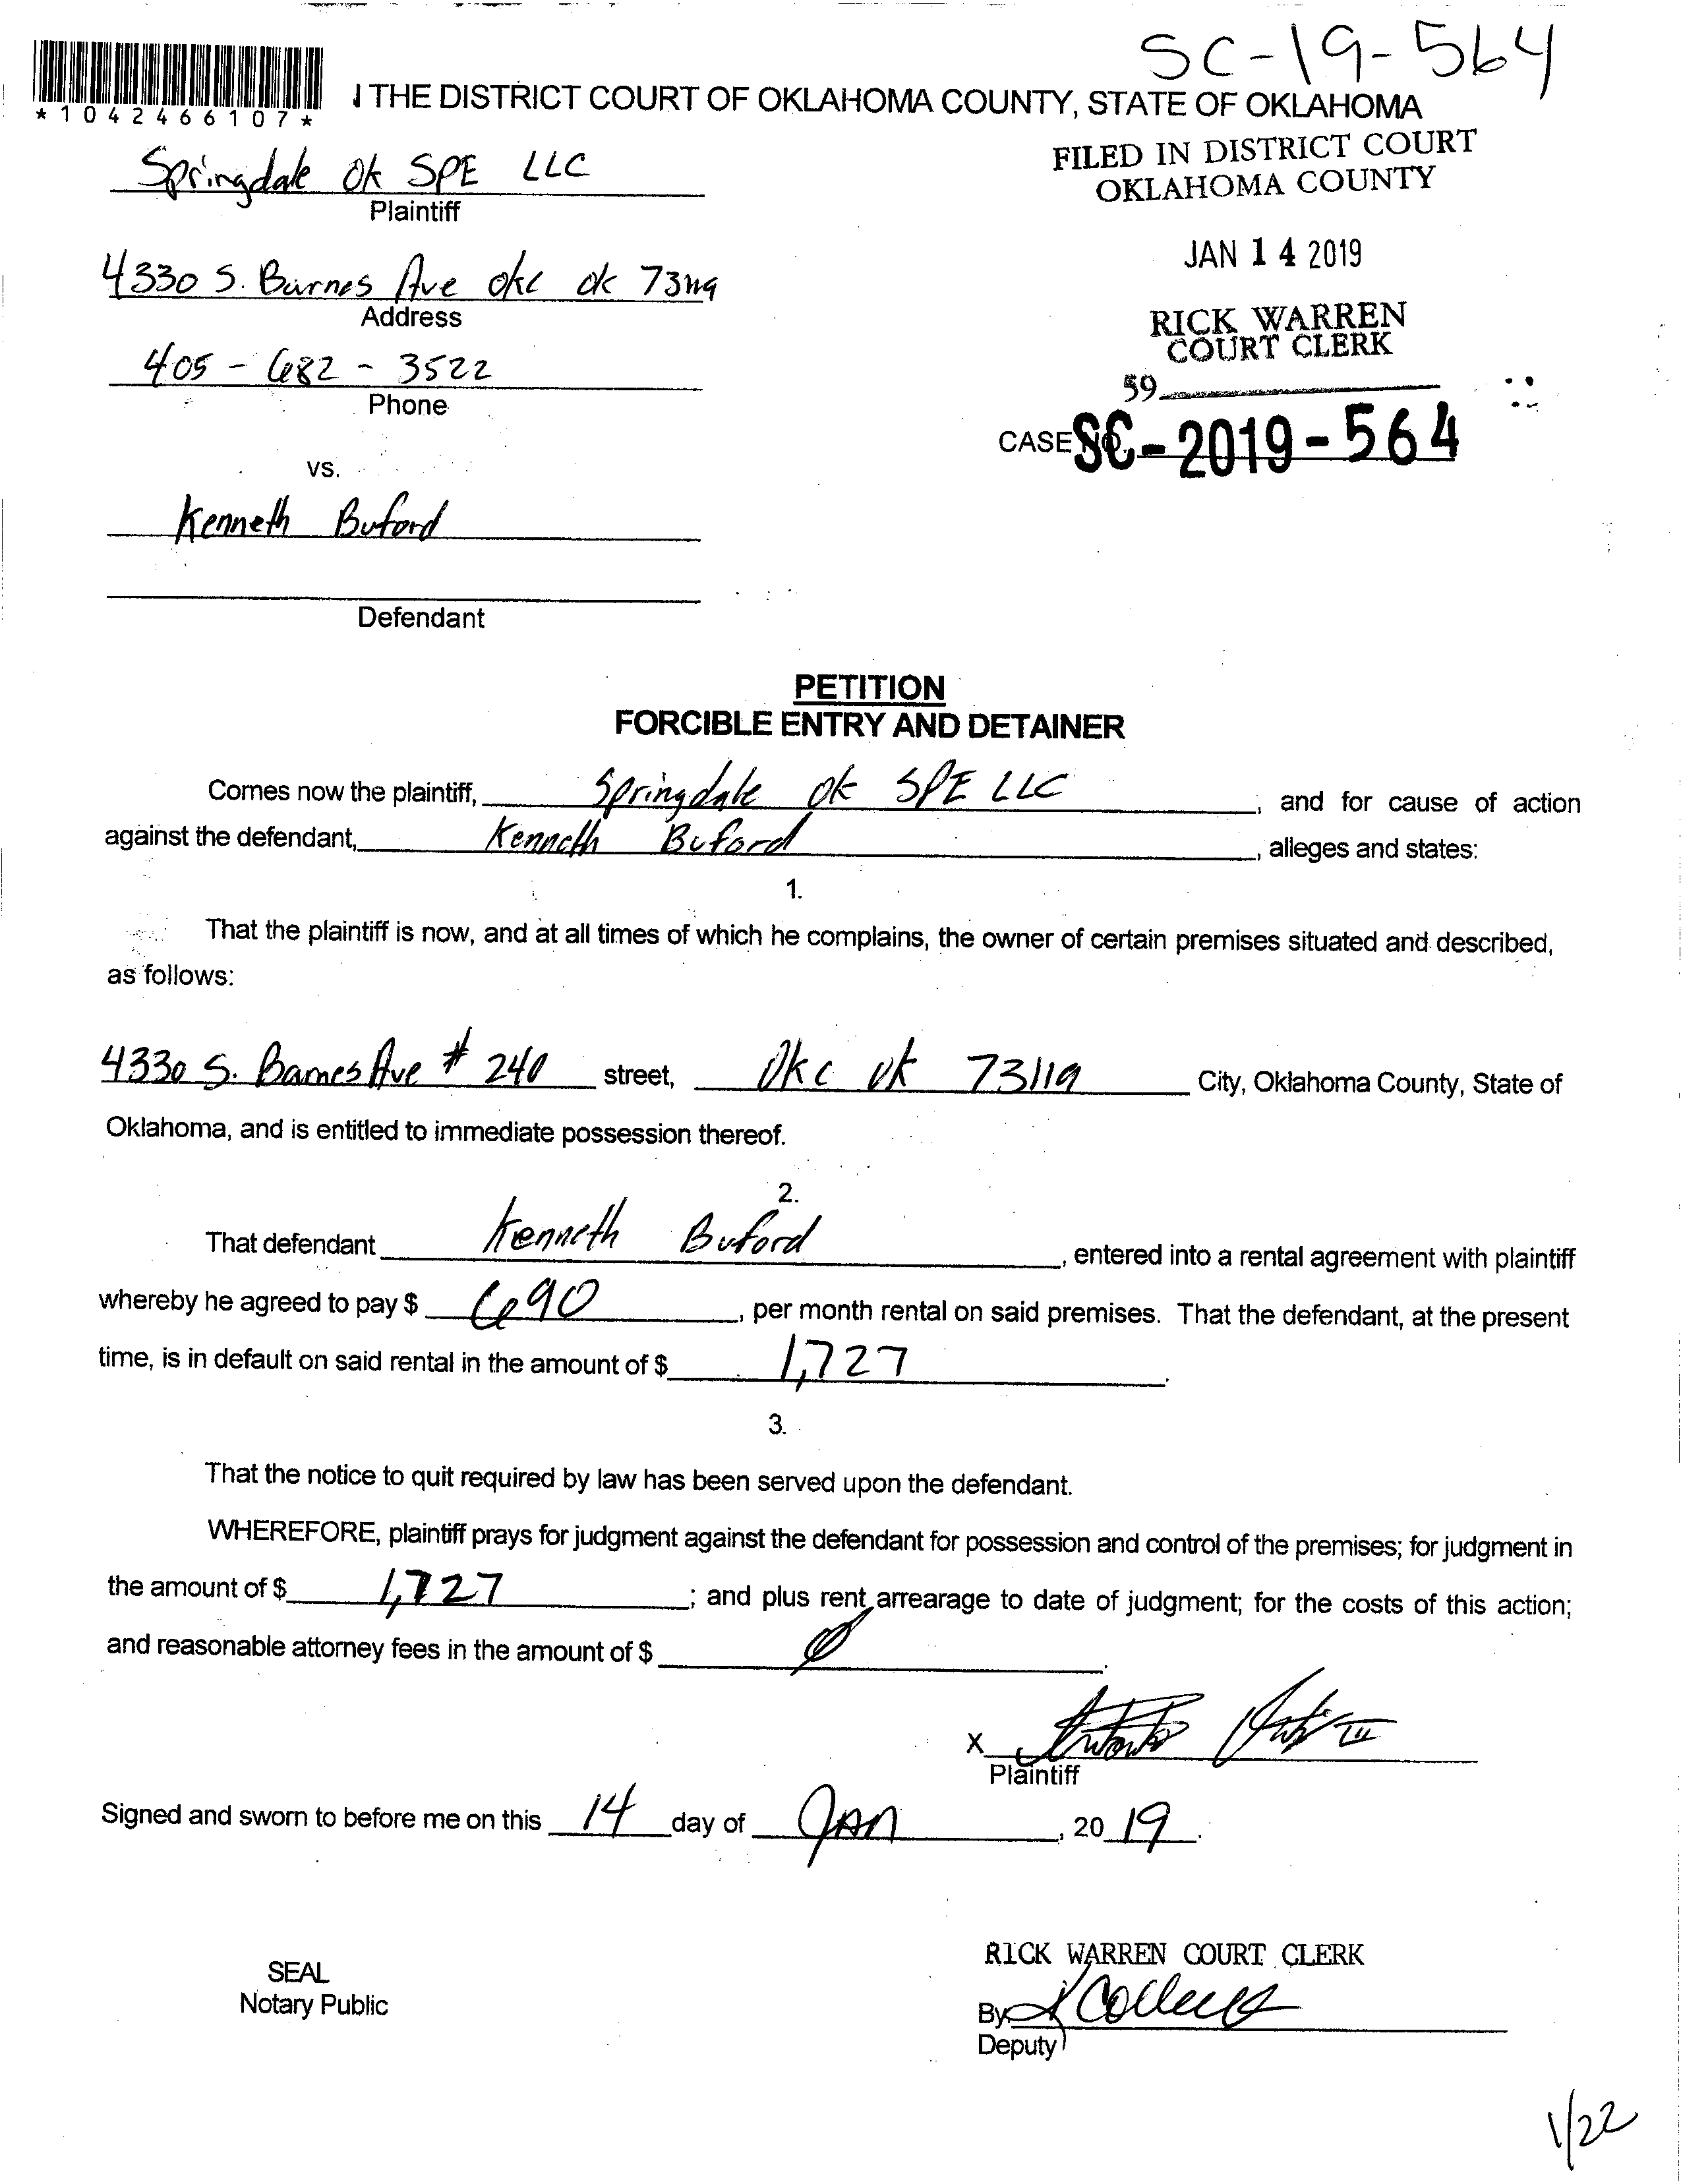 SC-19-564
*1042466107*
THE DISTRICT COURT OF OKLAHOMA COUNTY, STATE OF OKLAHOMA
FILED IN DISTRICT COURT
OKLAHOMA COUNTY
Springdale OK SPE LLC
Plaintiff
JAN 14 2019
4330 S. Barnes Ave okc ok 73119
Address
RICK WARREN
COURT CLERK
405-682-3522
Phone
59
CASE NO. SC-2019-564
vs.
Kenneth Buford
Defendant
PETITION
FORCIBLE ENTRY AND DETAINER
Comes now the plaintiff, Springdale ok SPE LLC, and for cause of action
against the defendant, Kenneth Buford, alleges and states:
1.
That the plaintiff is now, and at all times of which he complains, the owner of certain premises situated and described,
as follows:
4330 S. Barnes Ave # 240 street, Okc ok 73119 City, Oklahoma County, State of
Oklahoma, and is entitled to immediate possession thereof.
2.
That defendant Kenneth Buford, entered into a rental agreement with plaintiff
whereby he agreed to pay $ 690, per month rental on said premises. That the defendant, at the present
time, is in default on said rental in the amount of $ 1,727.
3.
That the notice to quit required by law has been served upon the defendant.
WHEREFORE, plaintiff prays for judgment against the defendant for possession and control of the premises; for judgment in
the amount of $ 1,727; and plus rent arrearage to date of judgment; for the costs of this action;
and reasonable attorney fees in the amount of $ Ø.
X III
Plaintiff
Signed and sworn to before me on this 14 day of Jan, 2019.
RICK WARREN COURT CLERK
SEAL
Notary Public
By
Deputy
1/22